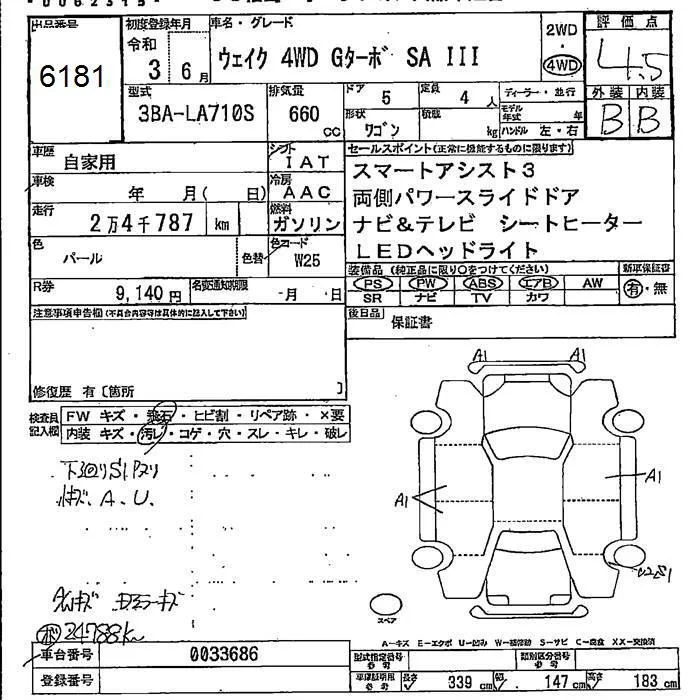 出品番号
6181
初度登録年月
令和
3年 6月
車名・グレード
ウェイク 4WD Gターボ SA III
2WD
・
4WD
評価点
4.5
型式
3BA-LA710S
排気量
660
CC
ドア
5
定員
4 人
形状
ワゴン
積載
kg
ディーラー・並行
モデル年式
年
ハンドル 左・右
外装 内装
B B
車歴
自家用
シフト
IAT
車検
年 月( 日)
冷房
AAC
走行
2万4千787 km
燃料
ガソリン
色
パール
色替
色コード
W25
R券
9,140円
名変通知期限
月 日
セールスポイント(正常に機能するものに限ります)
スマートアシスト3
両側パワースライドドア
ナビ&テレビ シートヒーター
LEDヘッドライト
装備品 (純正品に限り○をつけてください)
PS PW ABS エアB AW
SR ナビ TV カワ
新車保証書
有・無
後日品
保証書
注意事項申告欄(不具合内容等は具体的に記入して下さい)
修復歴 有〔箇所 〕
検査員
記入欄
FW キズ・飛石・ヒビ割・リペア跡・×要
内装 キズ・汚レ・コゲ・穴・スレ・キレ・破レ
下回りS1
キズ、A、U、
AWキズ
24788km
A1 A1
A1
A1
スペア
A-キズ E-エクボ U-凹み W-補修跡 S-サビ C-腐食 XX-交換済
車台番号
0033686
登録番号
型式指定番号
参考
類別区分番号
参考
車検証明用
参考
長さ 339 cm 幅 147 cm 高さ 183 cm